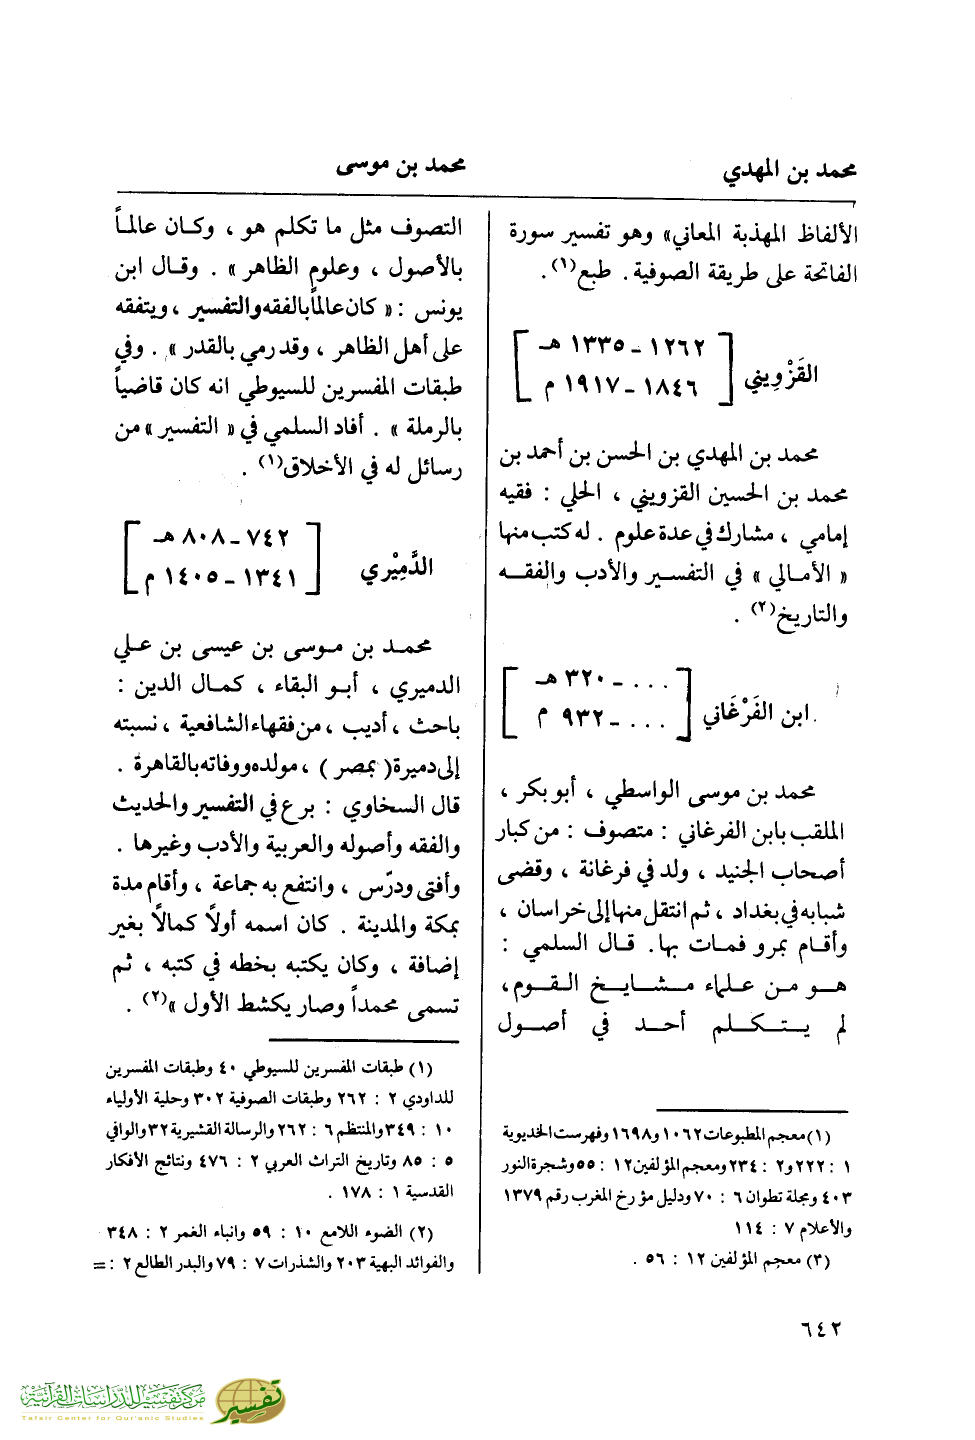 محمد بن المهدي
محمد بن موسى
الألفاظ المهذبة المعاني» وهو تفسير سورة
الفاتحة على طريقة الصوفية. طبع(١).
القَزْوِيني
١٢٦٢ - ١٣٣٥ هـ
١٨٤٦ - ١٩١٧ م
محمد بن المهدي بن الحسن بن أحمد بن
محمد بن الحسين القزويني ، الحلي : فقيه
إمامي ، مشارك في عدة علوم . له كتب منها
« الأمالي » في التفسير والأدب والفقه
والتاريخ(٢) .
ابن الفَرْغَاني
... - ٣٢٠ هـ
... - ٩٣٢ م
محمد بن موسى الواسطي ، أبو بكر ،
الملقب بابن الفرغاني : متصوف : من كبار
أصحاب الجنيد ، ولد في فرغانة ، وقضى
شبابه في بغداد ، ثم انتقل منها إلى خراسان ،
وأقام بمرو فمات بها. قال السلمي :
هو من علماء مشايخ القوم،
لم يتكلم أحد في أصول
(١) معجم المطبوعات ١٠٦٢ و١٦٩٨ وفهرست الخديوية
١ : ٢٢٢ و٢ : ٢٣٤ ومعجم المؤلفين ١٢ : ٥٥ وشجرة النور
٤٠٣ ومجلة تطوان ٦ : ٧٠ ودليل مؤرخ المغرب رقم ١٣٧٩
والأعلام ٧ : ١١٤
(٣) معجم المؤلفين ١٢ : ٥٦ .
التصوف مثل ما تكلم هو ، وكان عالماً
بالأصول ، وعلوم الظاهر » . وقال ابن
يونس : « كان عالماً بالفقه والتفسير ، ويتفقه
على أهل الظاهر ، وقد رمي بالقدر » . وفي
طبقات المفسرين للسيوطي انه كان قاضياً
بالرملة » . أفاد السلمي في « التفسير » من
رسائل له في الأخلاق(١) .
الدَّمِيْري
٧٤٢ - ٨٠٨ هـ
١٣٤١ - ١٤٠٥ م
محمد بن موسى بن عيسى بن علي
الدميري ، أبو البقاء ، كمال الدين :
باحث ، أديب ، من فقهاء الشافعية ، نسبته
إلى دميرة ( بمصر ) ، مولده ووفاته بالقاهرة .
قال السخاوي : برع في التفسير والحديث
والفقه وأصوله والعربية والأدب وغيرها .
وأفتى ودرّس ، وانتفع به جماعة ، وأقام مدة
بمكة والمدينة . كان اسمه أولاً كمالاً بغير
إضافة ، وكان يكتبه بخطه في كتبه ، ثم
تسمى محمداً وصار يكشط الأول »(٢) .
(١) طبقات المفسرين للسيوطي ٤٠ وطبقات المفسرين
للداودي ٢ : ٢٦٢ وطبقات الصوفية ٣٠٢ وحلية الأولياء
١٠ : ٣٤٩ والمنتظم ٦ : ٢٦٢ والرسالة القشيرية ٣٢ والوافي
٥ : ٨٥ وتاريخ التراث العربي ٢ : ٤٧٦ ونتائج الأفكار
القدسية ١ : ١٧٨ .
(٢) الضوء اللامع ١٠ : ٥٩ وانباء الغمر ٢ : ٣٤٨
والفوائد البهية ٢٠٣ والشذرات ٧ : ٧٩ والبدر الطالع ٢ : =
٦٤٢
مركز تفسير للدراسات القرآنية
Tafsir Center for Qur'anic Studies
تفسير